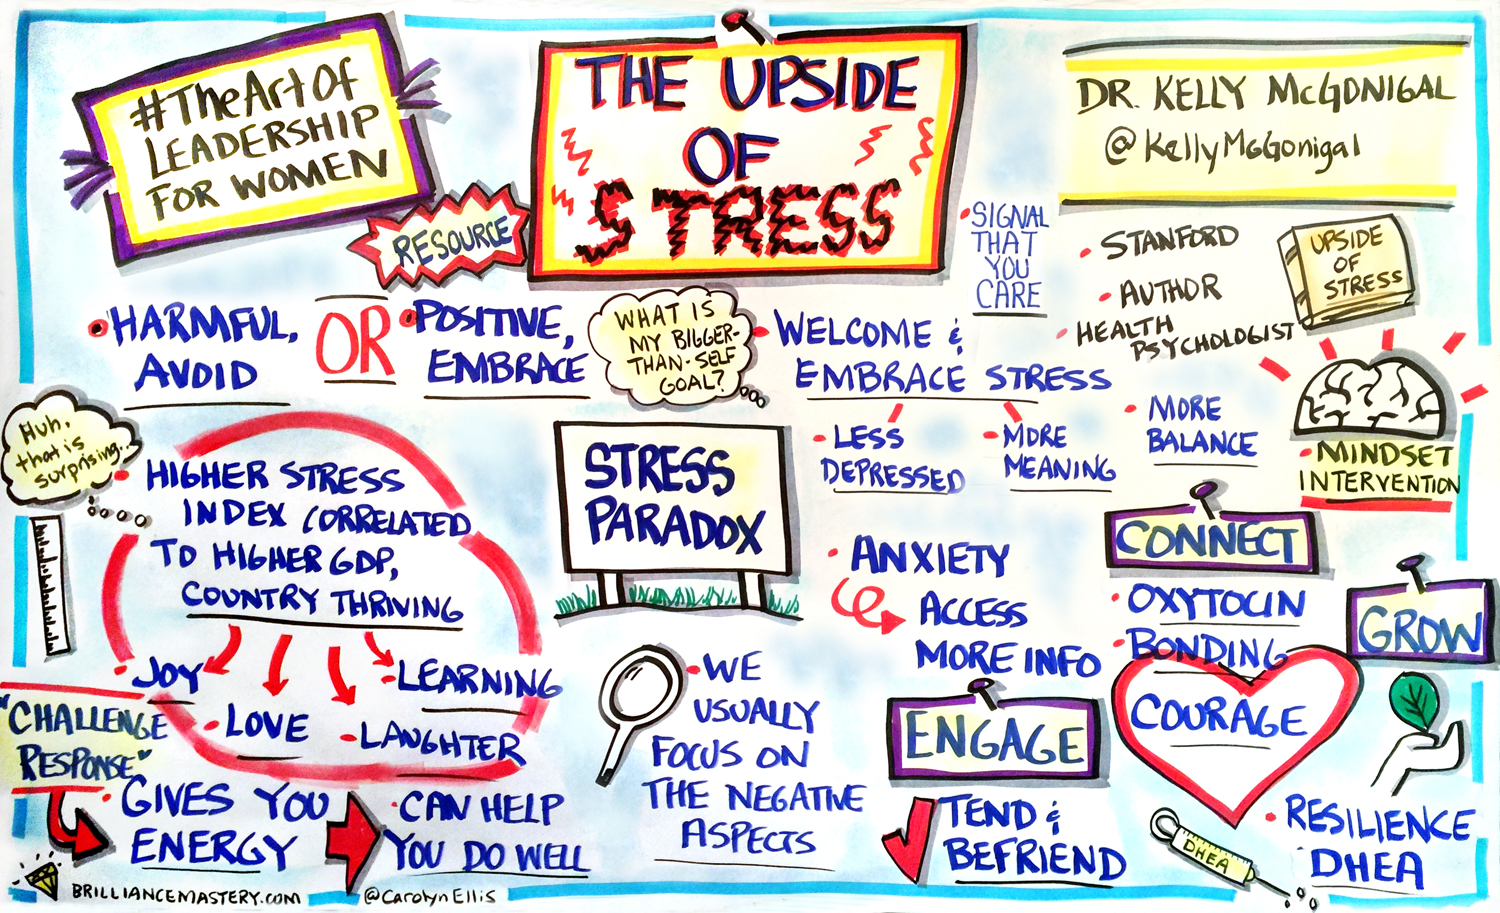 #TheArtOf
LEADERSHIP
FOR WOMEN
THE UPSIDE
OF
STRESS
DR. KELLY McGONIGAL
@KellyMcGonigal
RESOURCE
SIGNAL
THAT
YOU
CARE
STANFORD
AUTHOR
HEALTH
PSYCHOLOGIST
UPSIDE
OF
STRESS
HARMFUL,
AVOID
OR
POSITIVE,
EMBRACE
WHAT IS
MY BIGGER-
THAN-SELF
GOAL?
WELCOME &
EMBRACE STRESS
LESS
DEPRESSED
MORE
MEANING
MORE
BALANCE
MINDSET
INTERVENTION
Huh,
that is
surprising...
HIGHER STRESS
INDEX CORRELATED
TO HIGHER GDP,
COUNTRY THRIVING
JOY
LOVE
LAUGHTER
LEARNING
STRESS
PARADOX
ANXIETY
ACCESS
MORE INFO
CONNECT
OXYTOCIN
BONDING
COURAGE
GROW
"CHALLENGE
RESPONSE"
GIVES YOU
ENERGY
CAN HELP
YOU DO WELL
WE
USUALLY
FOCUS ON
THE NEGATIVE
ASPECTS
ENGAGE
TEND &
BEFRIEND
DHEA
RESILIENCE
DHEA
BRILLIANCEMASTERY.COM
@CarolynEllis